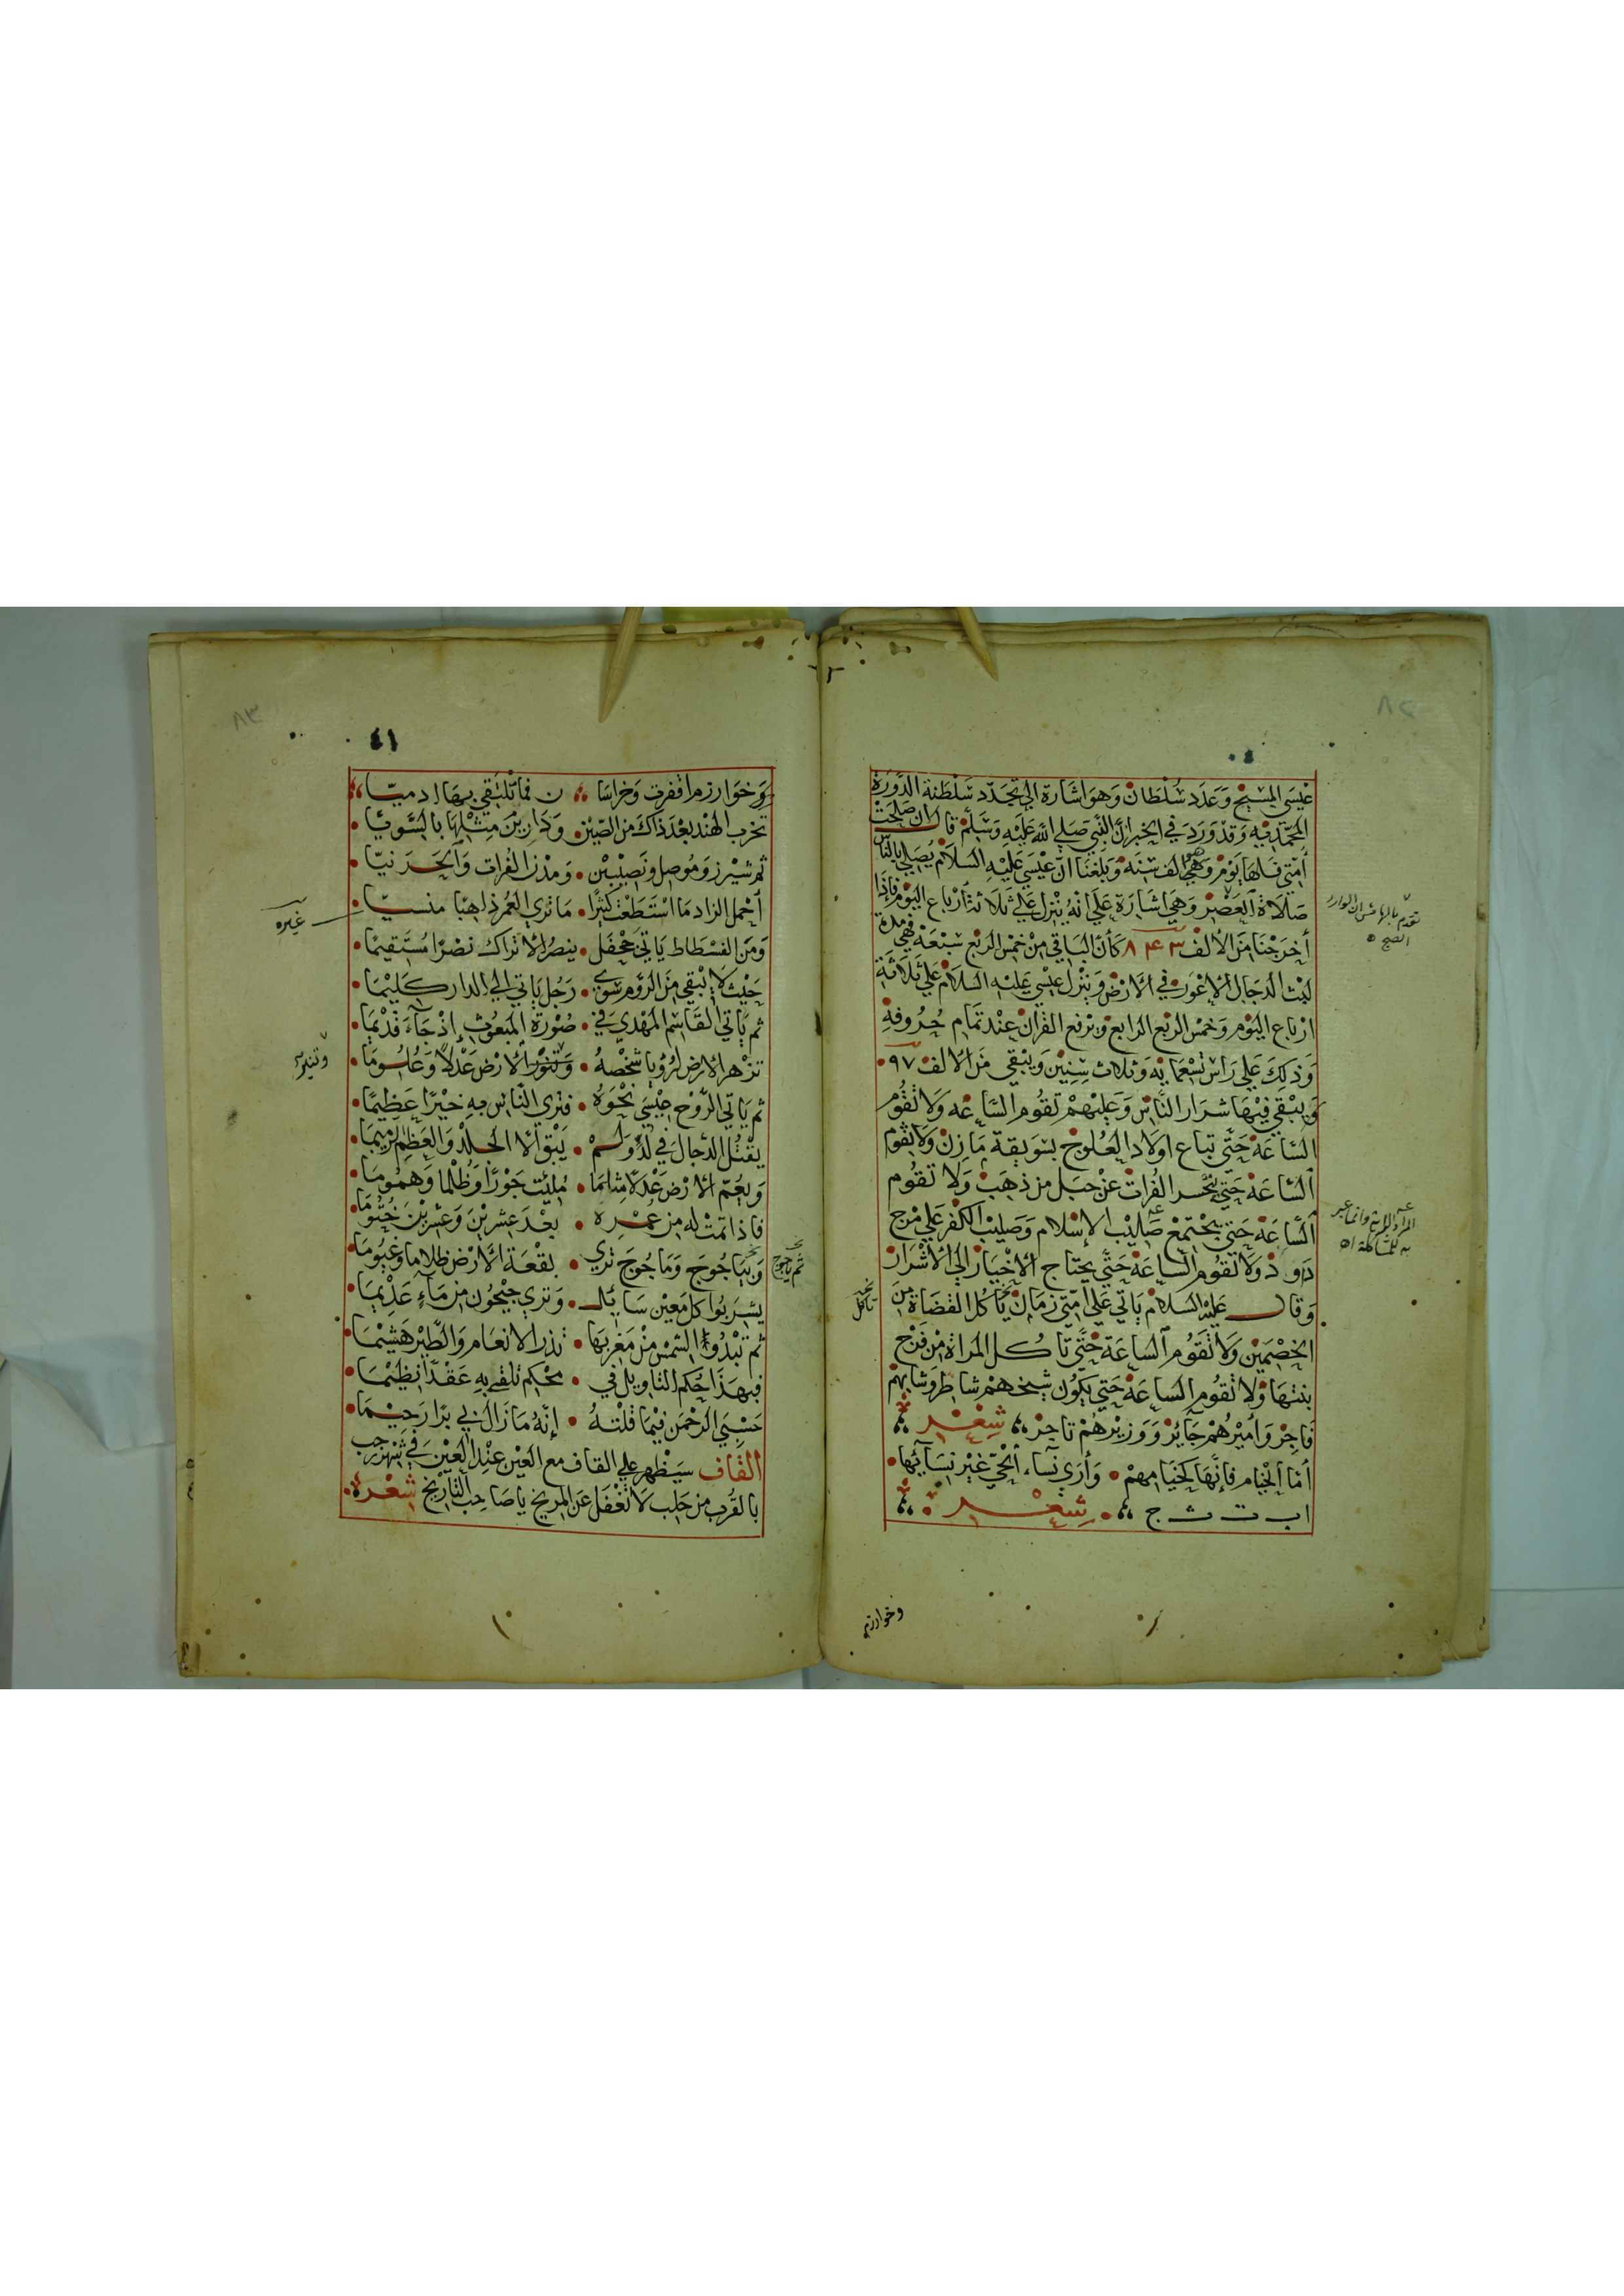 عيسي المسيح وعدد سلطان وهو اشارة الي تجدد سلطنة الدورة
المحمدية وقد ورد في الخبر ان النبي صلي الله عليه وسلم قال ان صلحت
أمتي فلها يوم وهي الف سنه وبلغنا انّ عيسي عليه السلام يُصلي بالناس
صلاة العصر وهي اشارة علي انه ينزل علي ثلاثة أرباع اليوم فإذا
أخرجنا من الالف ٨٤٣ كأن الباقي من خمس الربع سبعة فهي مدة
لبث الدجال الاعور في الارض وينزل عيسي عليه السلام علي ثلاثة
ارباع اليوم وخمس الربع الرابع ويرفع القران عند تمام حروفه
وذلك علي راس تسعمايه وثلاث سنين ويبقي من الالف ٩٧
ويبقي فيها شرار الناس وعليهم تقوم الساعه ولا تقوم
الساعة حتي تباع اولاد العلوج بسويقة مازن ولا تقوم
الساعة حتي ينحسر الفرات عن جبل من ذهب ولا تقوم
الساعة حتي يجتمع صاليب الإسلام وصليب الكفر علي مرج
دارود ولا تقوم الساعة حتي يحتاج الاخيار الي الاشرار
وقال عليه السلام ياتي علي امتي زمان يأكل القضاة من
الخصمين ولا تقوم الساعة حتي تاكل المراة من فرج
بنتها ولا تقوم الساعة حتي يكون شيخهم شاطر وشابهم
فاجر وأميرهم جآئز ووزيرهم تاجر شعر
أما الخيام فإنها كخيامهم وأري نسآء الحيّ غير نسآئها
اب ت ث ج شعر
تقدّم بالهامش ان الوارد
الصبح
المراد المريخ وانما عبر
به للمشاكلة اه
تاكل
وخوارزم
٤١
وخوارزم اقفرت وخراسا ن فما تلتقي بها ادميّا
تخرب الهند بعد ذاك من الصين ودارين مثلها بالسويّا
ثم شيرز وموصل ونصيبين ومدن الفرات والبحرنيّا
أحمل الزاد ما استطعت كثيرا ما تري العمر ذاهبا منسيّا
ومن الفسطاط ياتي جحفل ينصر الاتراك نصرا مستقيما
حيث لا يبقي من الروم سوي رجل ياتي الي الدار كليما
ثم ياتي القاسم المهدي في صورة المبعوث إذ جآء قديما
تزهر الارض لرؤيا شخصه وتنور الارض عدلا وعلوما
ثم ياتي الروح عيسي نحوه فتري الناس به خيرا عظيما
يقتل الدجال في لد ولم يبق الا الجلد والعظم رميما
ويعم الارض عدلا مثلما ملئت جورا وظلما وهموما
فاذا تمت له من عمره بعد عشرين وعشرين ختوما
وبياجوج وماجوج تري بقعة الارض ظلاما وغيوما
يشربوا كل معين سايل وتري جيحون من مآء عديما
ثم تبدوا الشمس من مغربها تذر الانعام والطير هشيما
فبهذا حكم التاويل في محكم تلقي به عقدا نظيما
حسبي الرحمن فيما قلته إنه ما زال بي برا رحيما
القاف سيظهر علي القاف مع العين عند العين في شهر رجب
بالقرب من حلب لا تغفل عن المريخ يا صاحب التأريخ شعره
غيره
ثم ياجوج